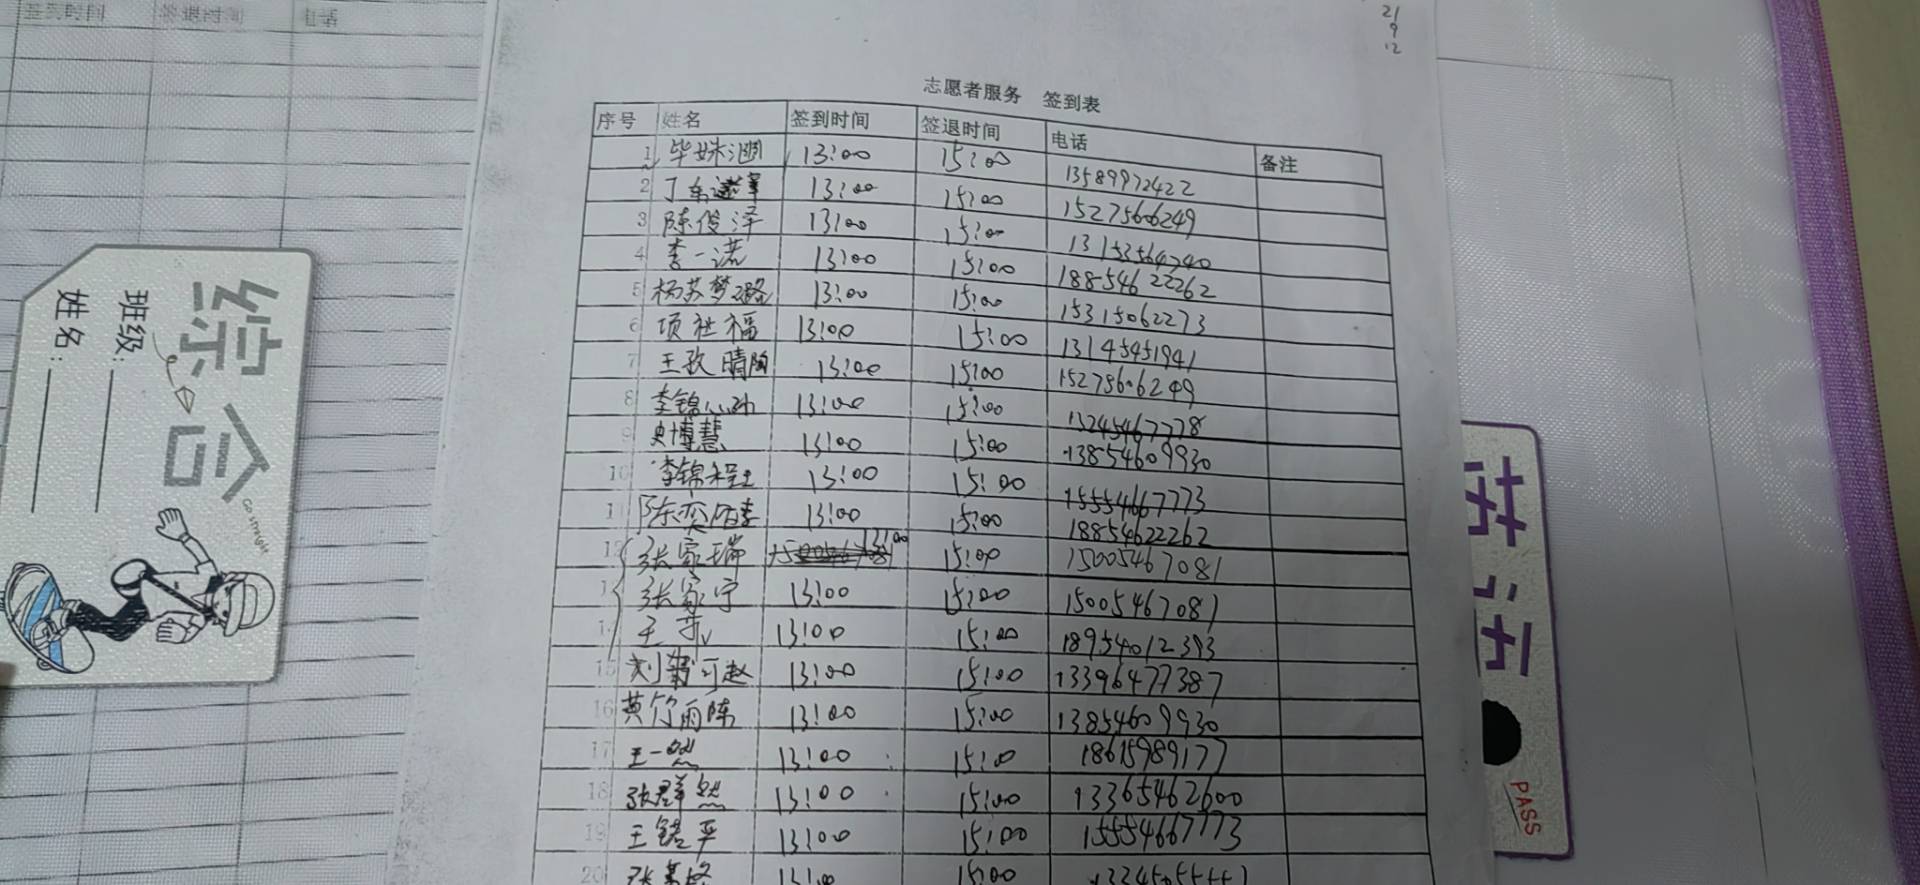 签到时间 签退时间 电话
21
9
12
志愿者服务 签到表
序号 姓名 签到时间 签退时间 电话 备注
1 毕姝 13:00 15:00 13589972422
2 丁 13:00 15:00 15275606249
3 陈俊泽 13:00 15:00 13153564740
4 李一诺 13:00 15:00 18854622262
5 杨苏梦璐 13:00 15:00 15315062273
6 项祉福 13:00 15:00 13145451941
7 王孜晴 13:00 15:00 15275606249
8 李锦 13:00 15:00 13245467778
9 史博慧 13:00 15:00 13854609930
10 李锦程 13:00 15:00 15554667773
11 陈奕 13:00 15:00 18854622262
12 张家瑞 13:00 15:00 15005467081
13 张家宁 13:00 15:00 15005467081
14 王 13:00 15:00 18954012393
15 刘 可 13:00 15:00 13396477387
16 黄竹雨陈 13:00 15:00 13854609930
17 王一然 13:00 15:00 18615989177
18 张群然 13:00 15:00 13365462600
19 王锘平 13:00 15:00 15554667773
20 张 13:00 15:00
综合
班级:
姓名:
GO STRIGHT
英语
PASS